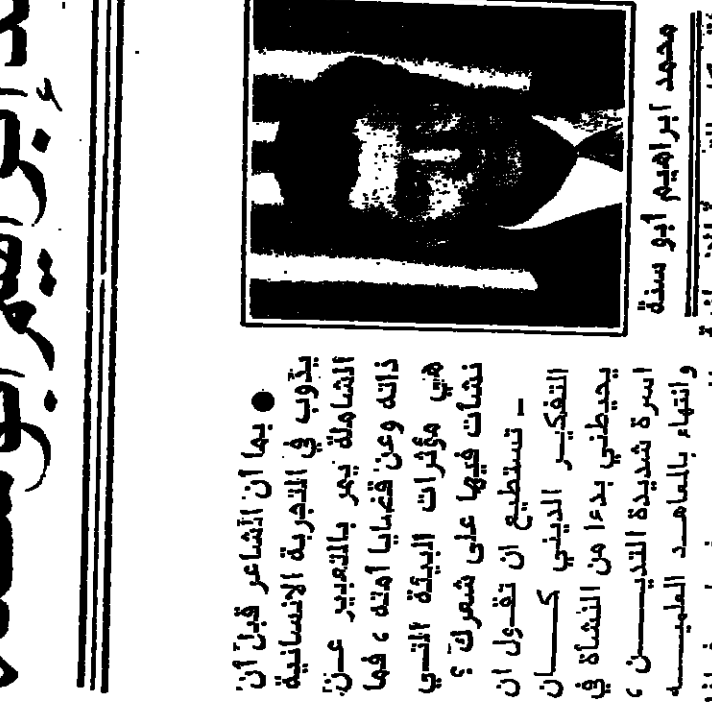 محمد ابراهيم أبو سنة
● بما أن الشاعر قبل أن
يذوب في التجربة الانسانية
الشاملة يمر بالتعبير عن
ذاته وعن قضايا أمته ، فما
هي مؤثرات البيئة التي
نشأت فيها على شعرك ؟
– تستطيع ان تقول ان
التفكير الديني كان
يحيطني بدءا من النشأة في
اسرة شديدة التدين ،
وانتهاء بالمعاهد العلميه